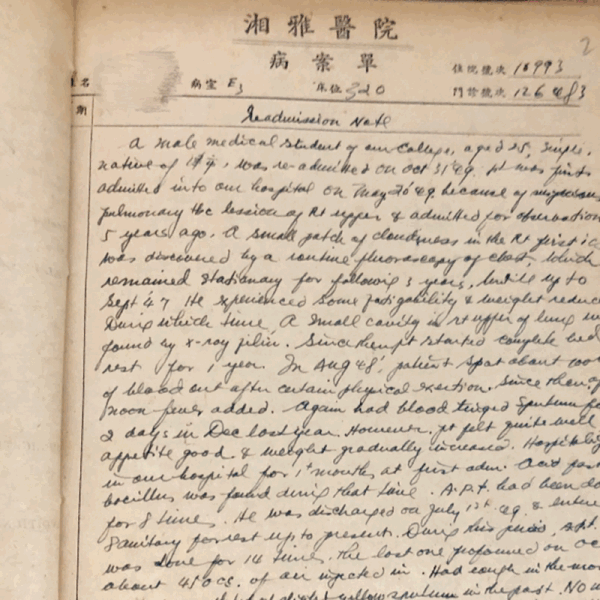 湘雅醫院
2
病案單
住院號次 18993
名 病室 E3 床位 320 門診號次 126483
期
Readmission Note
A male medical student of our College, aged 25, single,
native of was re-admitted on Oct 31 '49. pt was first
admitted into our hospital on May 26 '49. because of
pulmonary tbc lession of Rt upper & admitted for observation
5 years ago. A small patch of cloudiness in the Rt first ic
was discovered by a routine fluoroscopy of chest, which
remained stationary for following 3 years, until up to
Sept 47 He experienced some fatigability & weight reduc
During which time, A small cavity in rt upper of lung w
found by x-ray film. Since then pt started complete bed
rest for 1 year. In Aug 48', patient spat about 100
of blood out after certain physical exertion. Since then af
noon fever added. Again had blood tinged sputum fo
2 days in Dec last year. However, pt felt quite well
appetite good & weight gradually increased. Hospitaliz
in our hospital for 1 months at first adm. Acid fast
bacillus was found during that time. A.P.T. had been do
for 8 times. He was discharged on July 12th 49. & enter
Sanitary for rest up to present. During this period, apt.
was done for 14 times. The last one performed on Oc
about 450 cs. of air injected in. Had cough in the mor
slight yellow sputum in the past. No n